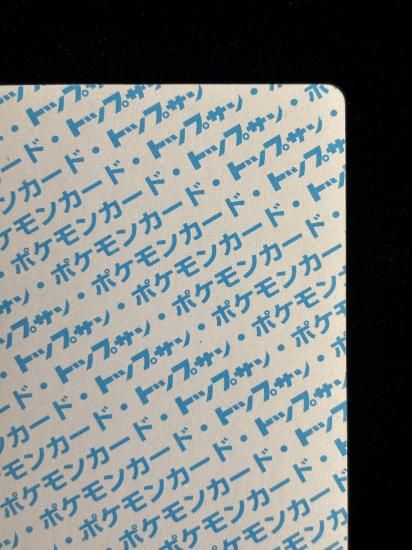 トップサン
ド・トップサン・
カード・トップサン・ポ
モンカード・トップサン・
ケモンカード・トップサン
・ポケモンカード・トップサン
・ポケモンカード・ト
トップサン・ポケモンカード・
トップサン・ポケモンカード
・トップサン・ポケモンカー
ド・トップサン・ポケモン
カード・トップサン・ポケ
ンカード・トップサン・ポ
ケモンカード・トップサン・
ポケモンカード・トップサン
・ポケモンカード・ト
・ポケモンカード・
ポケモンカード
ポケモン